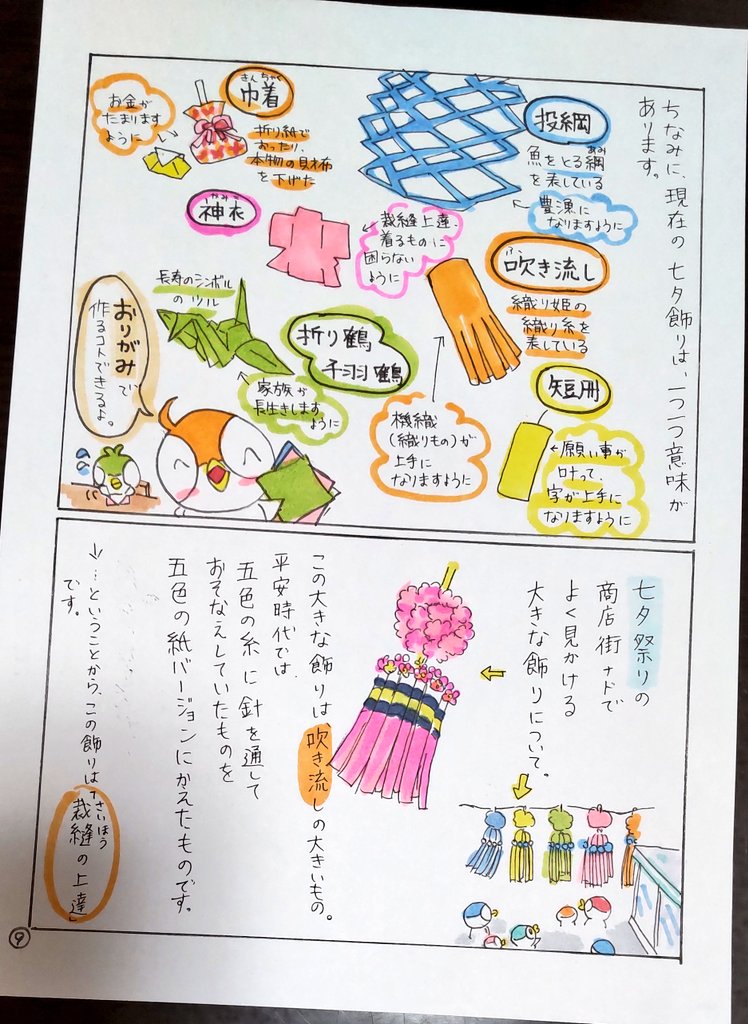 ちなみに、現在の七夕飾りは、一つ一つ意味が
あります。
投網
魚をとる網
あみ
を表している
豊漁に
なりますように
きんちゃく
巾着
折り紙で
おったり、
本物の財布
を下げた
お金が
たまります
ように
かみこ
神衣
裁縫上達、
着るものに
困らない
ように
ふ
吹き流し
織り姫の
織り糸を
表している
機織
(織りもの)が
上手に
なりますように
長寿のシンボル
のツル
折り鶴
千羽鶴
家族が
長生きします
ように
短冊
願い事が
叶って、
字が上手に
なりますように
おりがみで
作るコトできるよ。
七夕祭りの
商店街ナドで
よく見かける
大きな飾りについて。
この大きな飾りは、吹き流しの大きいもの。
平安時代では、
五色の糸に針を通して
おそなえしていたものを
五色の紙バージョンにかえたものです。
↓…ということから、この飾りは「裁縫の上達」
さいほう
です。
9